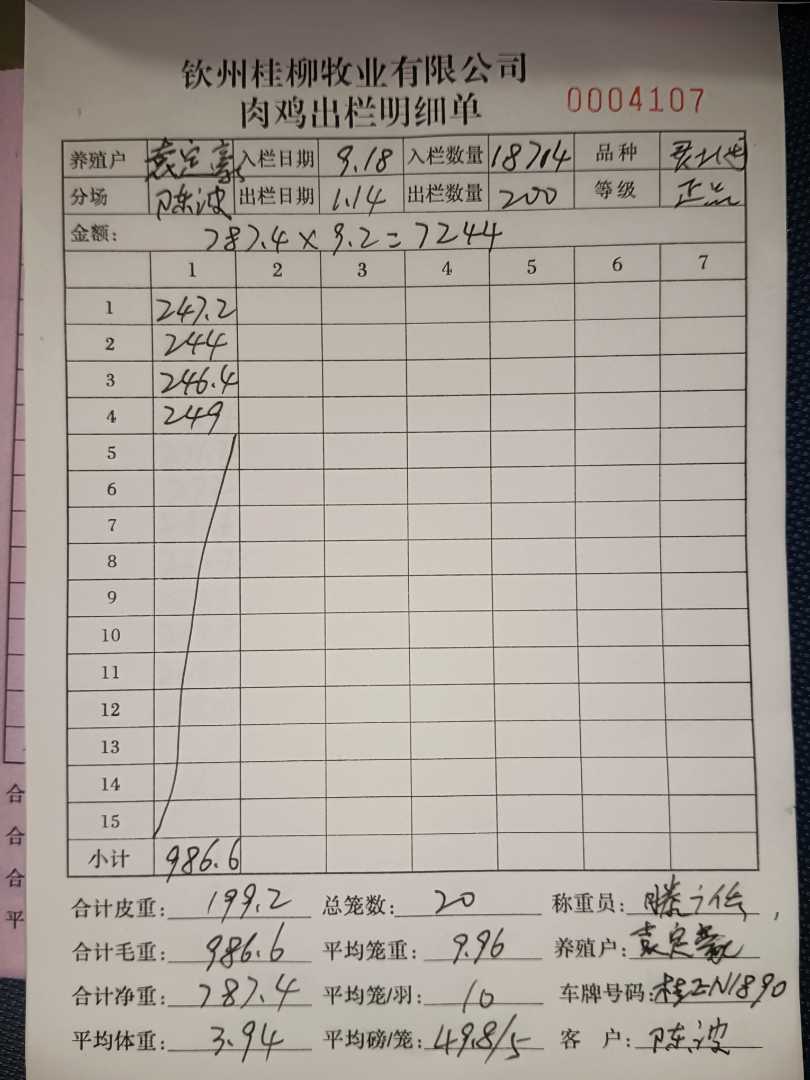 钦州桂柳牧业有限公司
肉鸡出栏明细单 0004107
养殖户 袁定豪 入栏日期 9.18 入栏数量 18714 品种
分场 陈波 出栏日期 1.14 出栏数量 200 等级 正品
金额: 787.4 × 9.2 = 7244
1 2 3 4 5 6 7
1 247.2
2 244
3 246.4
4 249
5
6
7
8
9
10
11
12
13
14
15
小计 986.6
合计皮重: 199.2 总笼数: 20 称重员:
合计毛重: 986.6 平均笼重: 9.96 养殖户: 袁定豪
合计净重: 787.4 平均笼/羽: 10 车牌号码: 桂ZN1890
平均体重: 3.94 平均磅/笼: 49.8/5 客 户: 陈波
合
合
合
平